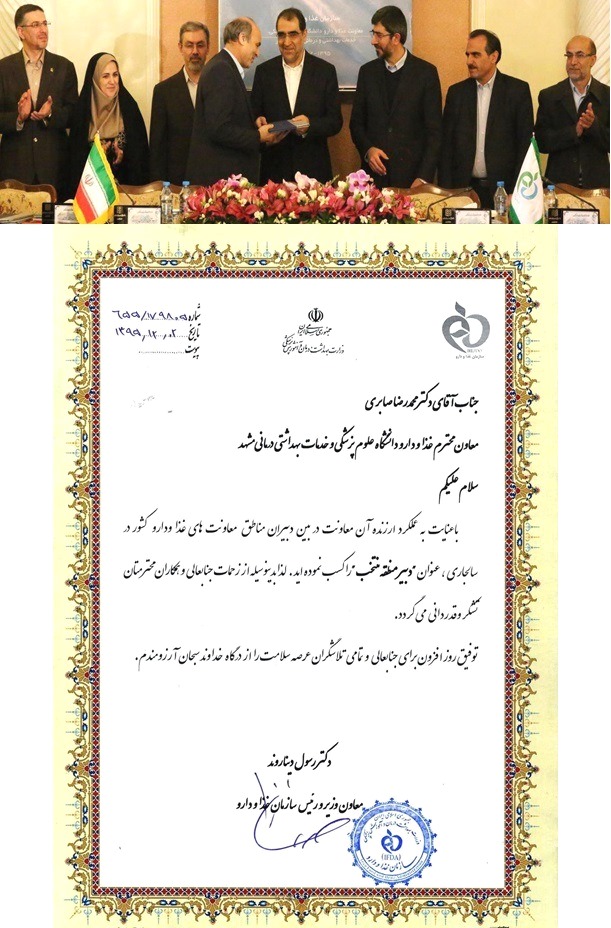 سازمان غذا
معاونت غذا و دارو دانشگاه
۱۳۹۵
شماره ۶۵۵/۱۷۹۸۰۵
تاریخ ۱۳۹۵,۱۲,۰۲
پیوست
جمهوری اسلامی ایران
وزارت بهداشت، درمان و آموزش پزشکی
سازمان غذا و دارو
جناب آقای دکتر محمدرضا صابری
معاون محترم غذا و دارو دانشگاه علوم پزشکی و خدمات بهداشتی درمانی مشهد
سلام علیکم
با عنایت به عملکرد ارزنده آن معاونت در بین دبیران مناطق معاونت های غذا و دارو کشور در
سالجاری، عنوان "دبیر منطقه منتخب" را کسب نموده اید. لذا بدینوسیله از زحمات جنابعالی و همکاران محترمتان
تشکر و قدردانی می گردد.
توفیق روز افزون برای جنابعالی و تمامی تلاشگران عرصه سلامت را از درگاه خداوند سبحان آرزومندم.
دکتر رسول دیناروند
معاون وزیر و رئیس سازمان غذا و دارو
(IFDA)
سازمان غذا و دارو